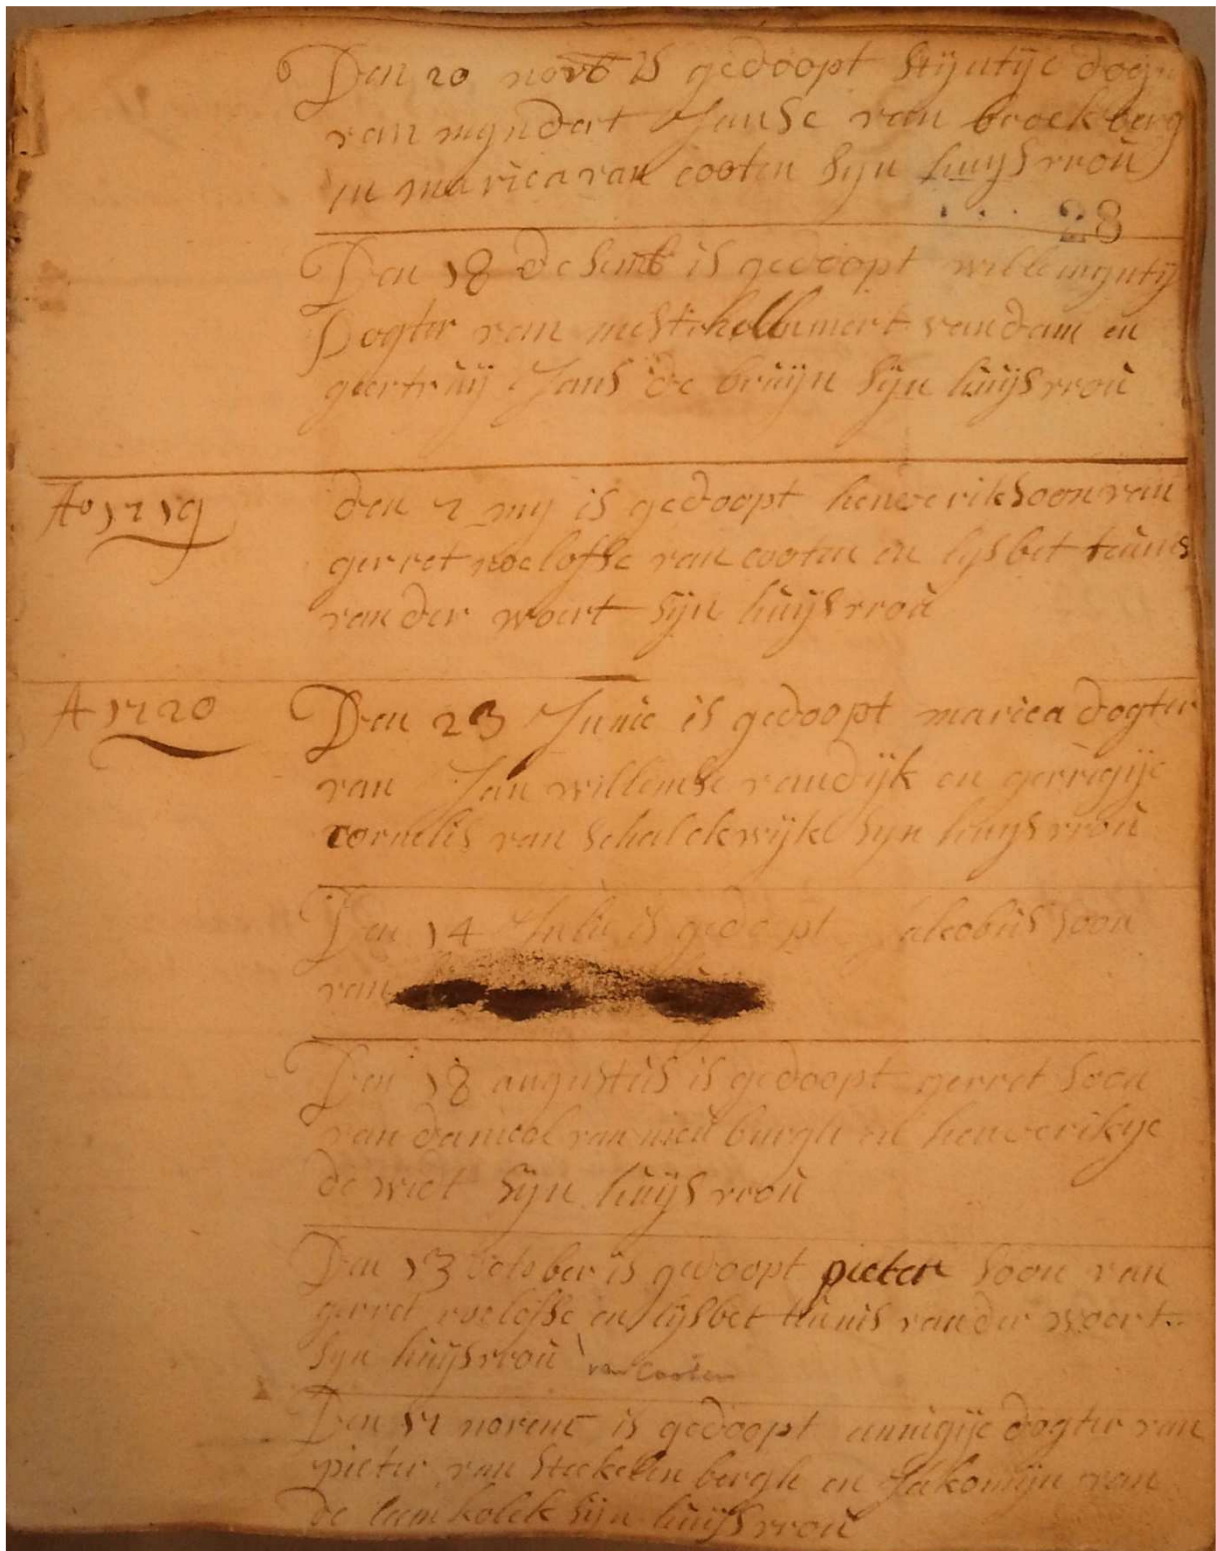 Den 20 novb is gedoopt Stijntije dogtr
van myndert Janse van broekberg
en marica van cooten Syn huysvrou
28
Den 18 desemb is gedoopt willemyntij
Dogter van mestr hellemert van dam en
geertruij Jans de bruijn Sijn huijsvrou
Ao 1719
den 7 mij is gedoopt henderik Soon van
gerret roeloffse van cooten en lijsbet tunis
van der woert Sijn huijsvrou
A 1720
Den 23 Junie is gedoopt marica dogter
van Jan willemse van dijk en gerrigije
cornelis van Schalckwijk Syn huysvrou
Den 14 Julie is gedoopt Jakobus Soon
van
Den 18 augustus is gedoopt gerret Soon
van danieel van nieu burgh en henderikije
de widt Sijn huijsvrou
Den 13 october is gedoopt pieter Soon van
gerret roeloffse en lijsbet tunis van der woert
Syn huijsvrou van Cooten
Den 17 novemb is gedoopt annigije dogter van
pieter van Steekelen bergh en Jakomijn van
de leemkolck Sijn huijsvrou